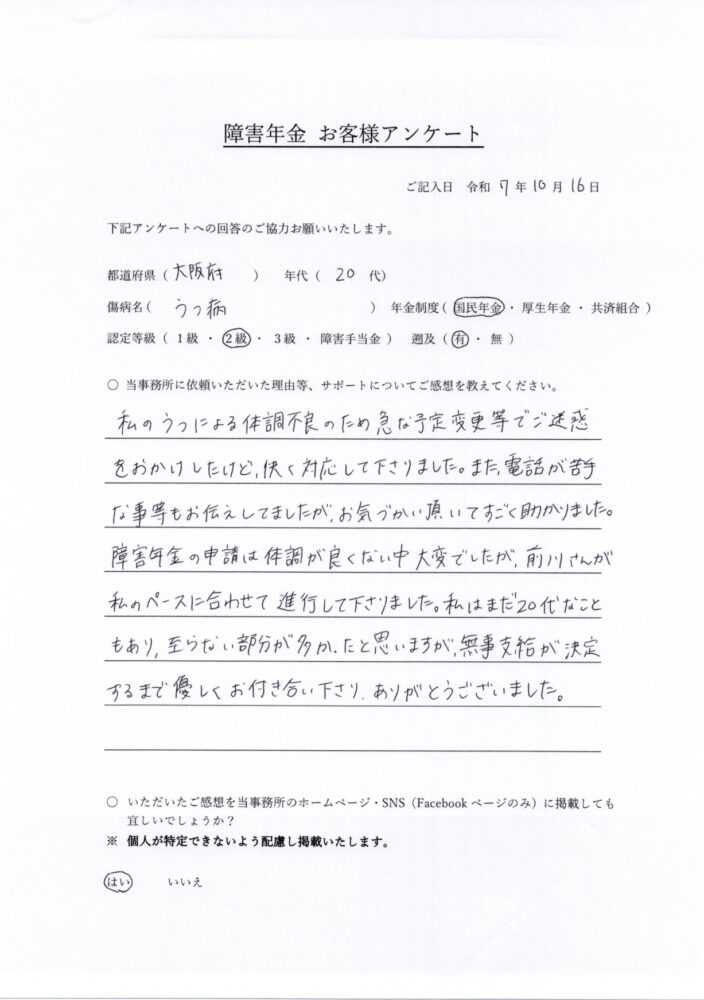 障害年金 お客様アンケート
ご記入日 令和 7 年 10 月 16 日
下記アンケートへの回答のご協力お願いいたします。
都道府県（ 大阪府 ） 年代（ 20 代）
傷病名（ うつ病 ） 年金制度（ 国民年金 ・ 厚生年金 ・ 共済組合 ）
認定等級（ 1級 ・ 2級 ・ 3級 ・ 障害手当金 ） 遡及（ 有 ・ 無 ）
○ 当事務所に依頼いただいた理由等、サポートについてご感想を教えてください。
私のうつによる体調不良のため急な予定変更等でご迷惑
をおかけしたけど、快く対応して下さりました。また、電話が苦手
な事等もお伝えしてましたが、お気づかい頂いてすごく助かりました。
障害年金の申請は体調が良くない中 大変でしたが、前川さんが
私のペースに合わせて進行して下さりました。私はまだ20代なこと
もあり、至らない部分が多かったと思いますが、無事支給が決定
するまで優しくお付き合い下さり、ありがとうございました。
○ いただいたご感想を当事務所のホームページ・SNS（Facebook ページのみ）に掲載しても
宜しいでしょうか？
※ 個人が特定できないよう配慮し掲載いたします。
はい いいえ